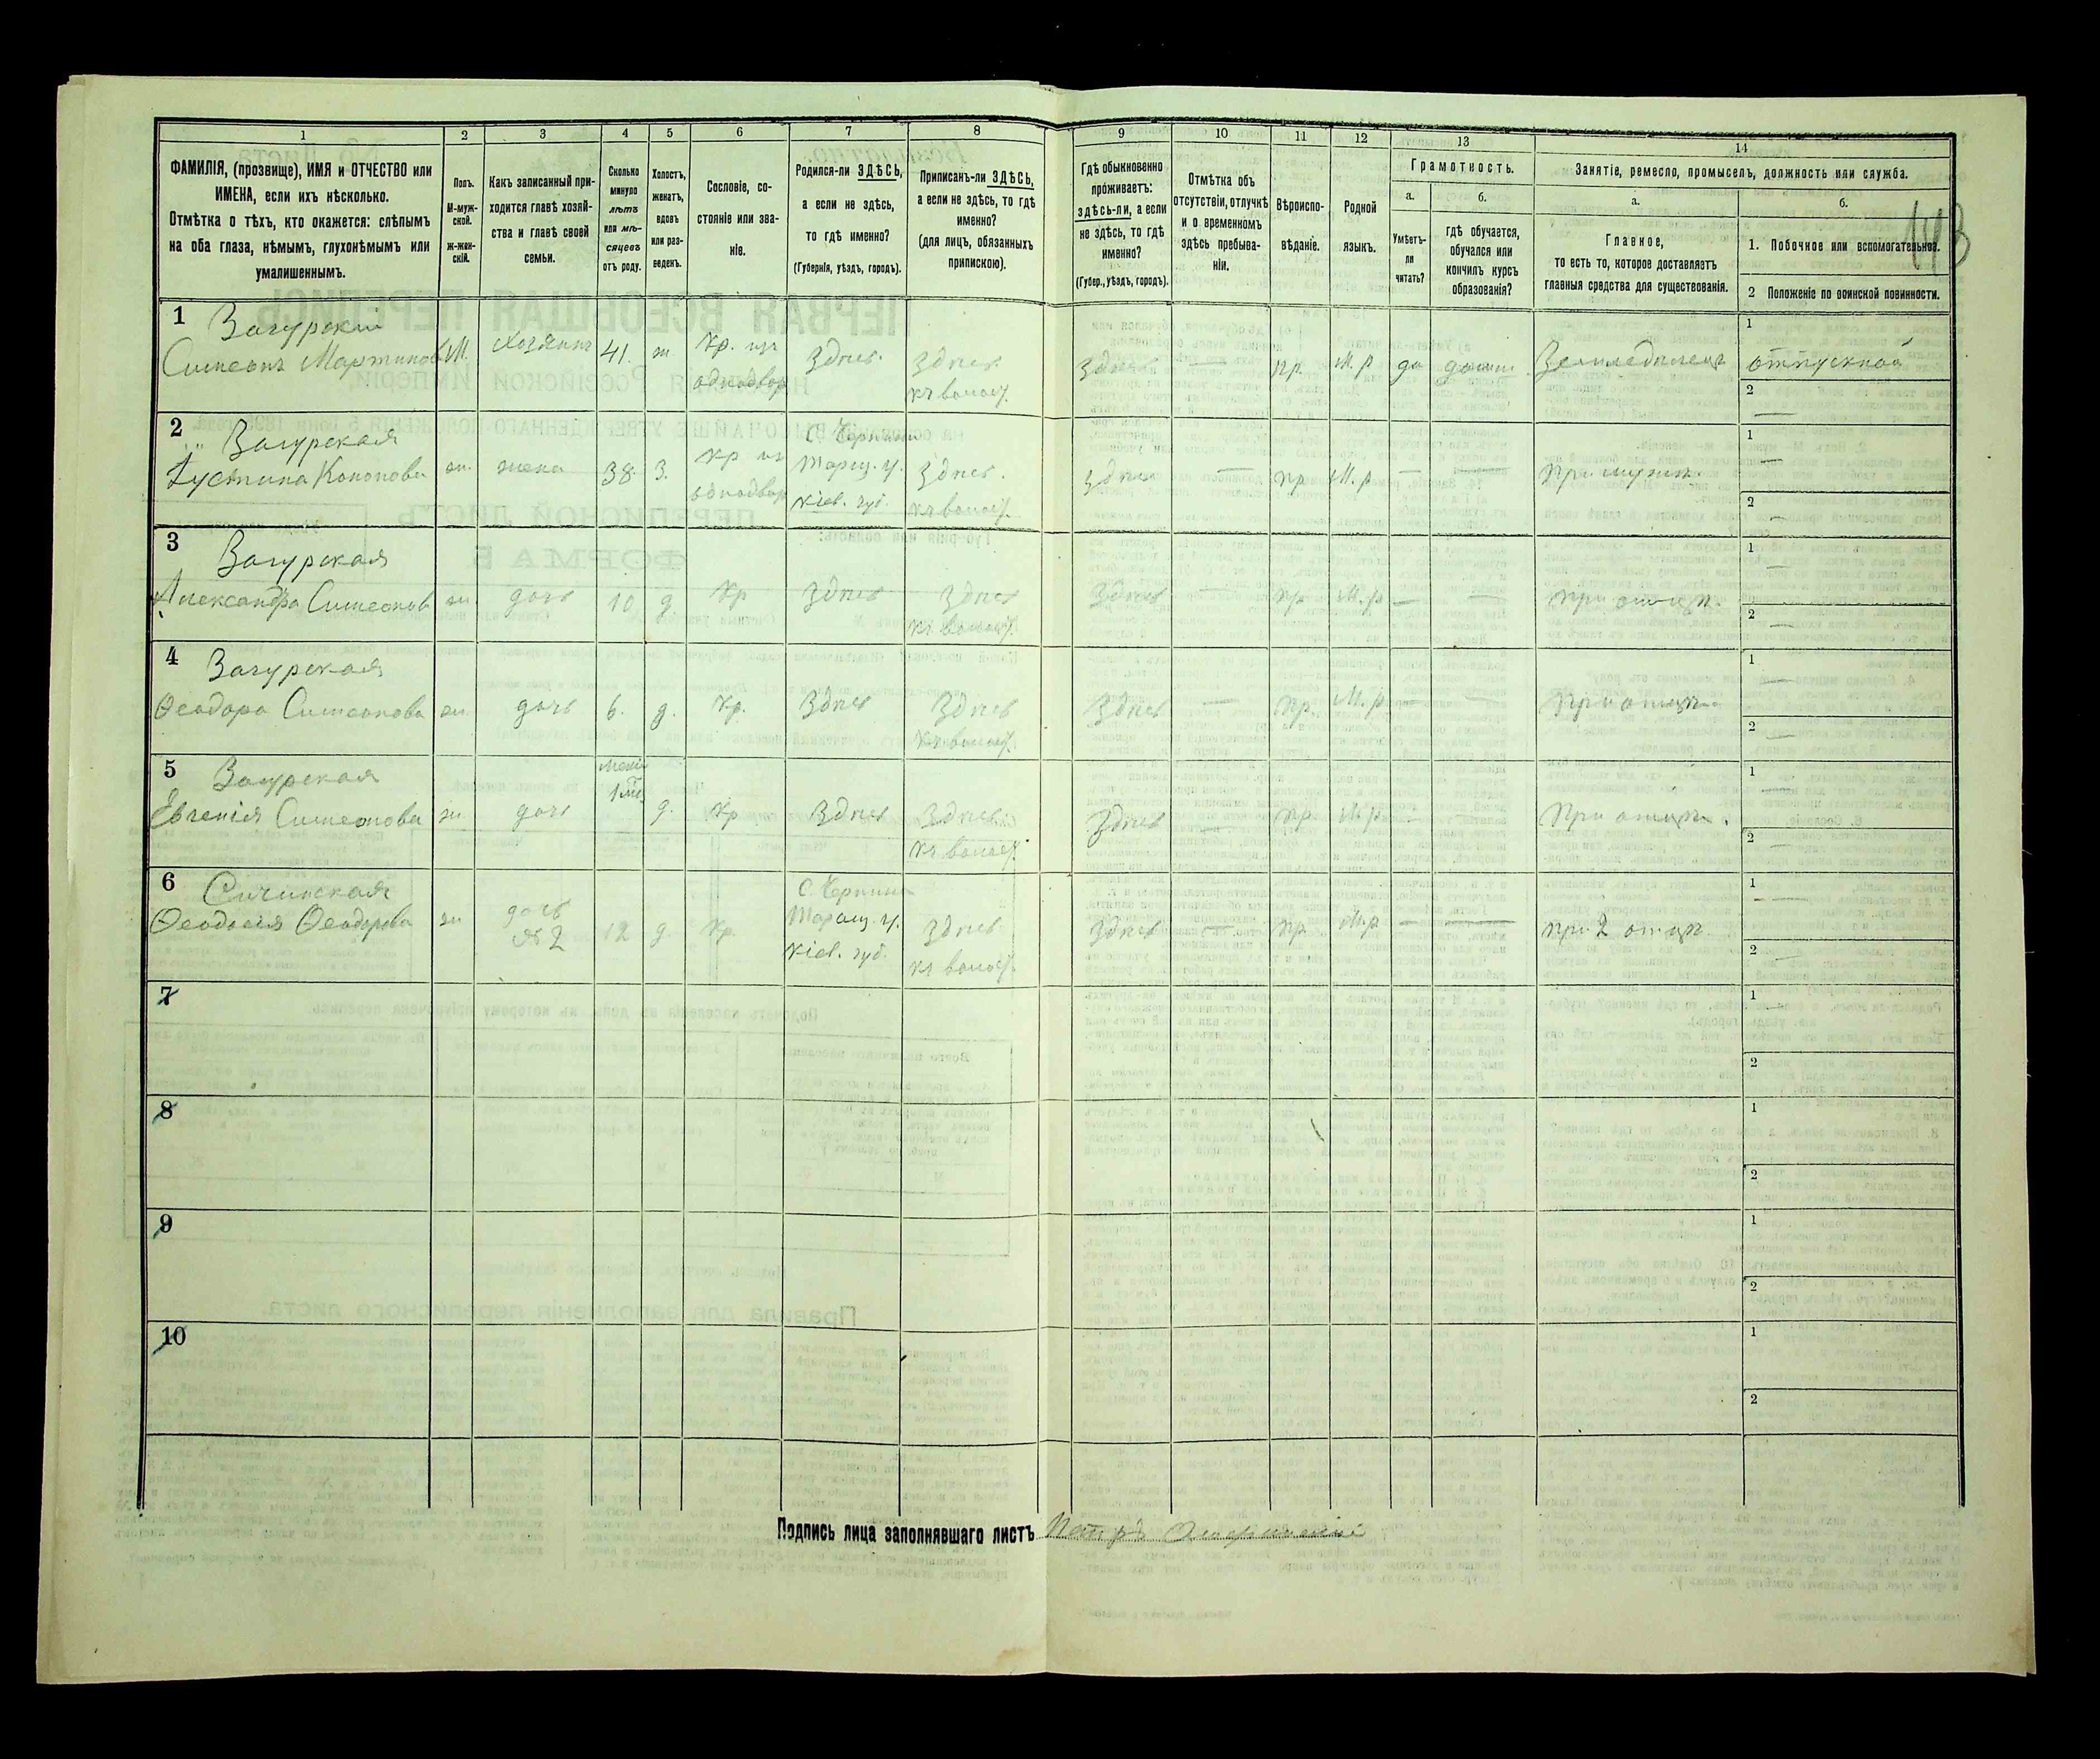 1 2 3 4 5 6 7 8 9 10 11 12 13 14
ФАМИЛІЯ, (прозвище), ИМЯ и ОТЧЕСТВО или
ИМЕНА, если ихъ нѣсколько.
Отмѣтка о тѣхъ, кто окажется: слѣпымъ
на оба глаза, нѣмымъ, глухонѣмымъ или
умалишеннымъ.
Полъ.
М-муж-
ской.
ж-жен-
скій.
Какъ записанный при-
ходится главѣ хозяй-
ства и главѣ своей
семьи.
Сколько
минуло
лѣтъ
или мѣ-
сяцевъ
отъ роду.
Холостъ,
женатъ,
вдовъ
или раз-
веденъ.
Сословіе, со-
стояніе или зва-
ніе.
Родился-ли ЗДѢСЬ,
а если не здѣсь,
то гдѣ именно?
(Губернія, уѣздъ, городъ).
Приписанъ-ли ЗДѢСЬ,
а если не здѣсь, то гдѣ
именно?
(для лицъ, обязанныхъ
припискою).
Гдѣ обыкновенно
проживаетъ:
здѣсь-ли, а если
не здѣсь, то гдѣ
именно?
(Губер., уѣздъ, городъ).
Отмѣтка объ
отсутствіи, отлучкѣ
и о временномъ
здѣсь пребыва-
ніи.
Вѣроиспо-
вѣданіе.
Родной
языкъ.
Грамотность.
а.
Умѣетъ-
ли
читать?
б.
гдѣ обучается,
обучался или
кончилъ курсъ
образованія?
Занятіе, ремесло, промыселъ, должность или служба.
а.
Главное,
то есть то, которое доставляетъ
главныя средства для существованія.
б.
1. Побочное или вспомогательное.
2 Положеніе по воинской повинности.
1 Загурскій
Симеонъ Мартиновъ М. Хозяинъ 41. ж. Кр. изъ
однодвор
Здѣсь. Здѣсь
къ волост.
Здѣсь — пр. М.р да Земледѣлецъ
1
2 —
2 Загурская
Іустина Кононова ж. жена 38. З. Кр из
однодвор
Таращ. у.
Кіев. губ.
Здѣсь.
къ волост.
Здѣсь — пр. М.р — — При мужѣ.
1 —
2 —
3 Загурская
Александра Симеонов ж. дочь 10 д. Кр Здѣсь Здѣсь
къ волост.
Здѣсь — пр. М.р — — При отцѣ.
1 —
2 —
4 Загурская
Ѳеодора Симеонова ж. дочь 6. д. Кр. Здѣсь Здѣсь
къ волост.
Здѣсь — пр. М.р — — При отцѣ.
1 —
2 —
5 Загурская
Евгенія Симеонова ж дочь д. Кр Здѣсь Здѣсь
къ волост.
Здѣсь — пр. М.р — — При отцѣ.
1 —
2 —
6 Сичинская
Ѳеодосія Ѳеодорова ж дочь
№2
12 д. Кр.
Таращ. у.
Кіев. губ.
Здѣсь
къ волост.
Здѣсь — пр. М.р — — при 2 отцѣ.
1 —
2 —
7
1
2
8
1
2
9
1
2
10
1
2
Подпись лица заполнявшаго листъ Петръ